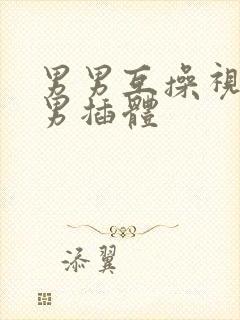 男男互操視
男插體
添翼